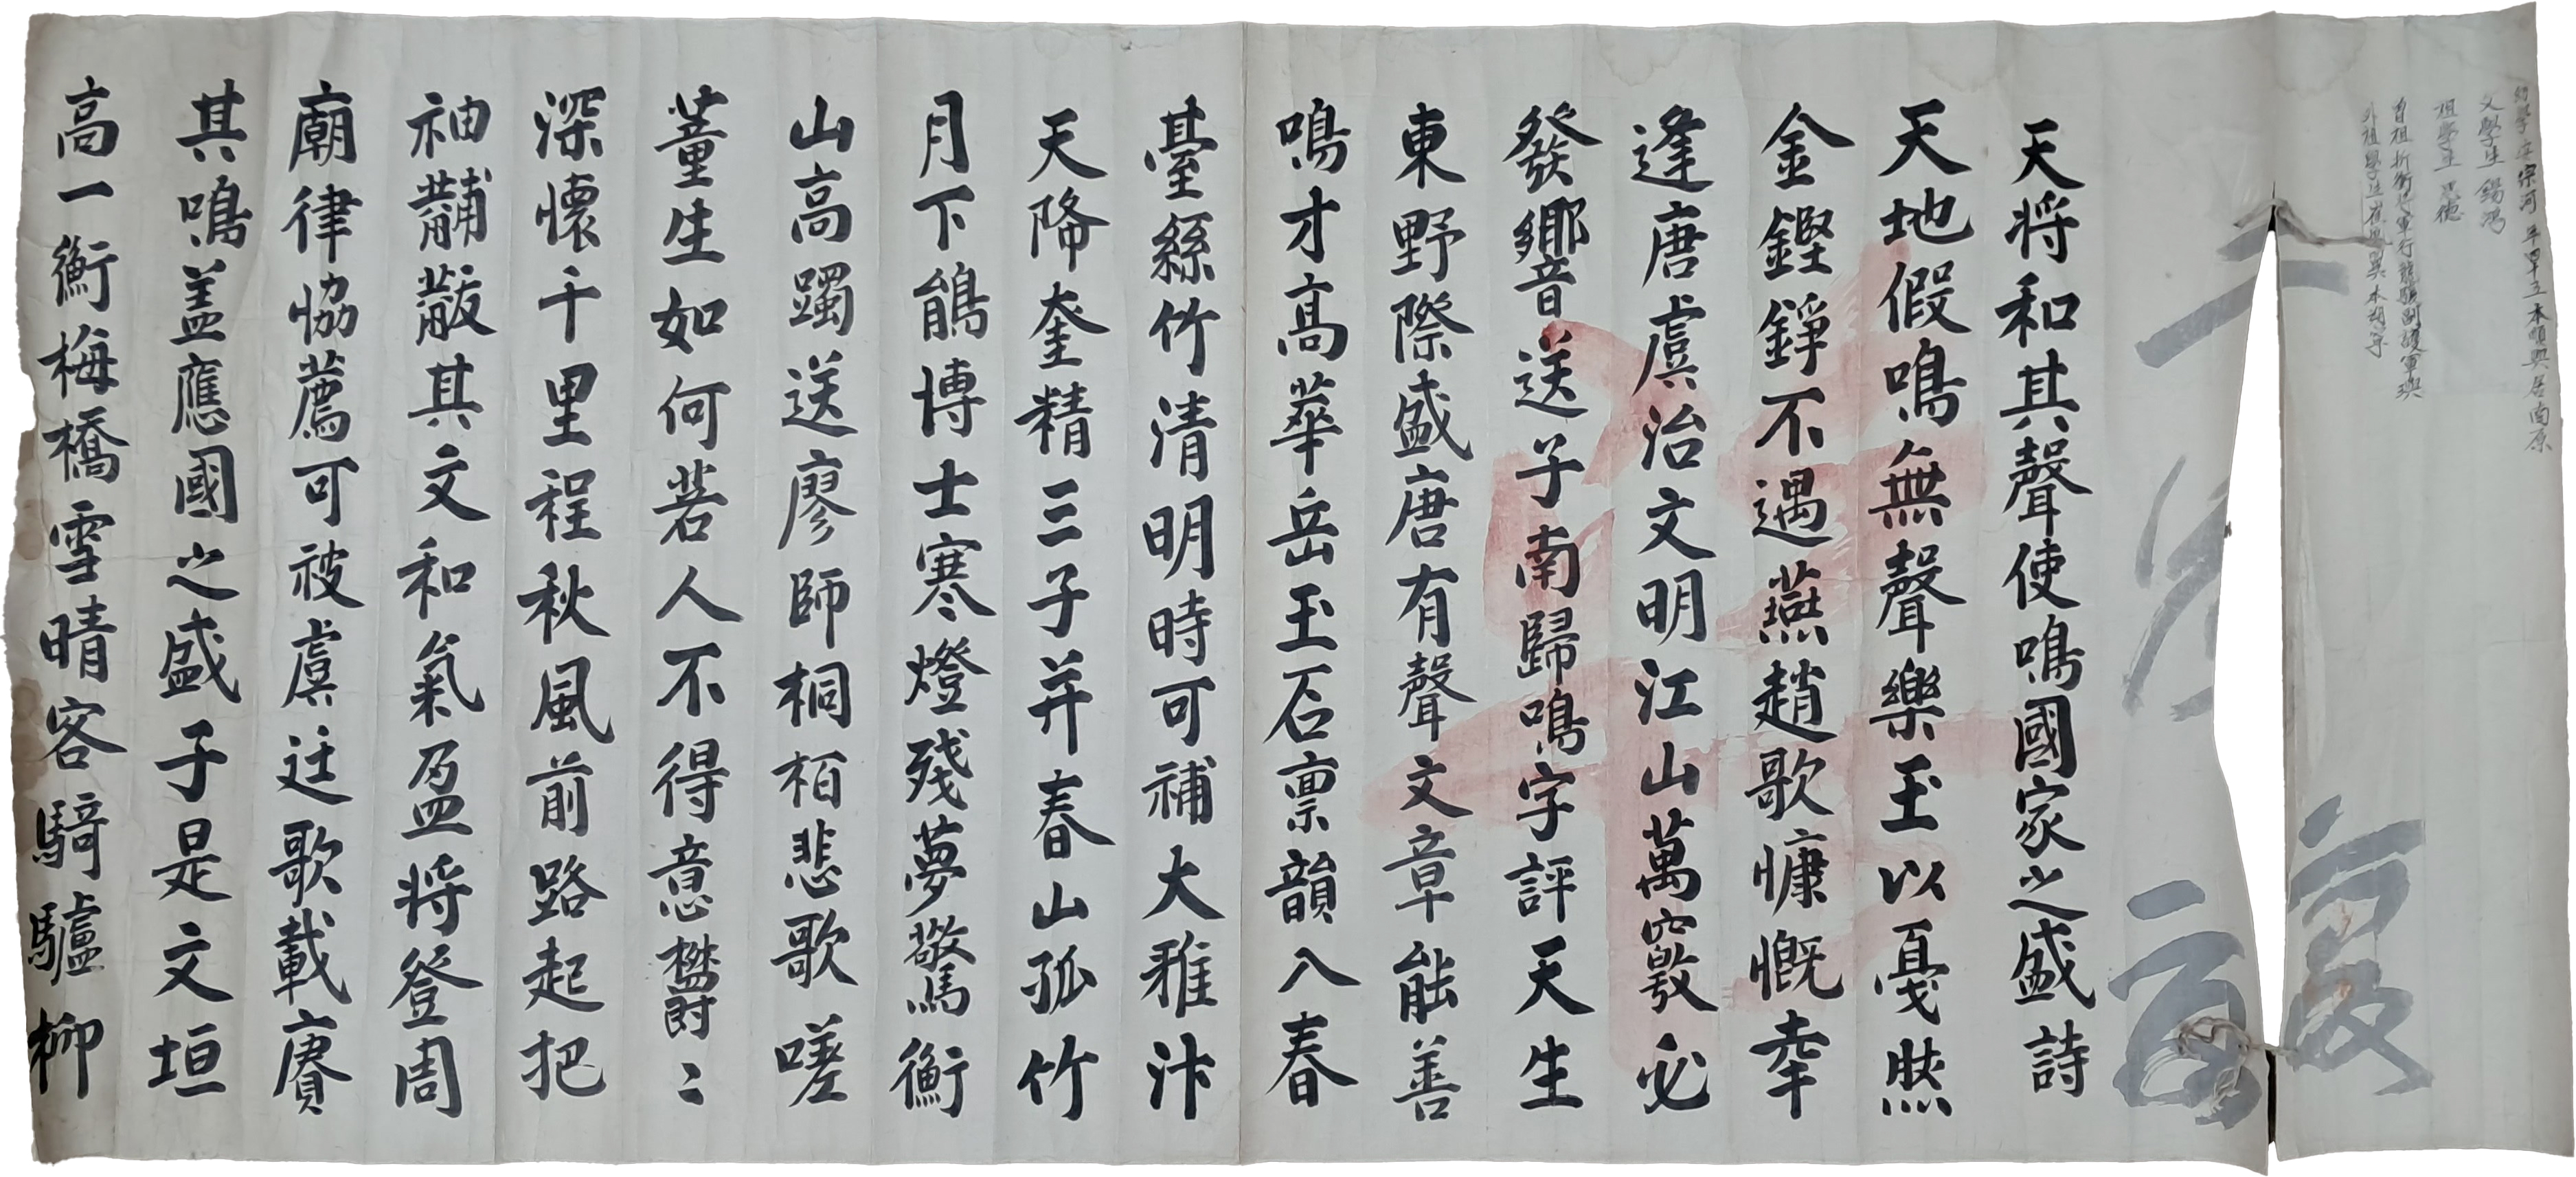 幼學 安宗河 年四十五 本順興 居南原
父學生 錫鴻
祖學生 思德
曾祖折衝將軍行龍驤衛副護軍 璵
外祖學生崔 本朔寧
天將和其聲使鳴國家之盛詩
天地假鳴無聲樂玉以戛然
金鏗錚不遇燕趙歌慷慨幸
逢唐虞治文明江山萬竅必
發響送子南歸鳴字評天生
東野際盛唐有聲文章能善
鳴才高華岳玉石禀韻八春
臺絲竹清明時可補大雅汴
天降奎精三子并春山孤竹
月下鵑博士寒燈殘夢驚衡
山高躅送廖師桐栢悲歌嗟
董生如何若人不得意鬱鬱〻
深懷千里程秋風前路起把
袖黼黻其文和氣盈將登周
廟律協薦可被虞廷歌載賡
其鳴盖應國之盛子是文垣
高一衡梅橋雪晴客騎驢柳